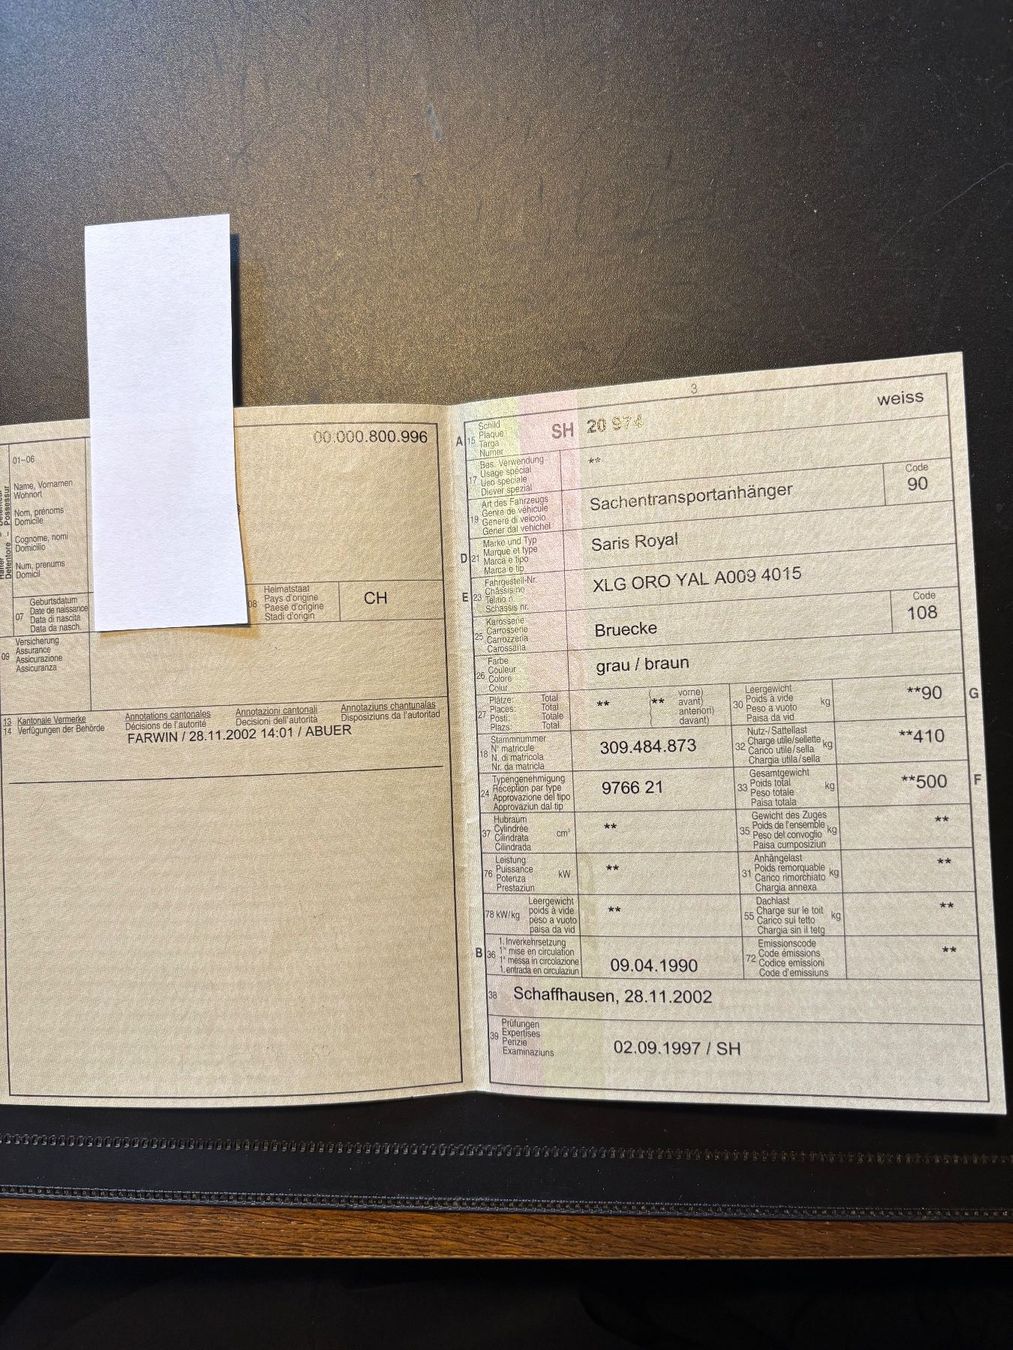 00.000.800.996
01-06
Name, Vornamen
Wohnort
Nom, prénoms
Domicile
Cognome, nomi
Domicilio
Num, prenums
Domicil
Detentore - Possessur
07
Geburtsdatum
Date de naissance
Data di nascita
Data da nasch.
08
Heimatstaat
Pays d'origine
Paese d'origine
Stadi d'origin
CH
09
Versicherung
Assurance
Assicurazione
Assicuranza
13
14
Kantonale Vermerke
Verfügungen der Behörde
Annotations cantonales
Décisions de l'autorité
Annotazioni cantonali
Decisioni dell'autorità
Annotaziuns chantunalas
Disposiziuns da l'autoritad
FARWIN / 28.11.2002 14:01 / ABUER
3
weiss
A
15
Schild
Plaque
Targa
Numer
SH 20 974
17
Bes. Verwendung
Usage spécial
Uso speciale
Diever spezial
**
19
Art des Fahrzeugs
Genre de véhicule
Genere di veicolo
Gener dal vehichel
Sachentransportanhänger
Code
90
D
21
Marke und Typ
Marque et type
Marca e tipo
Marca e tip
Saris Royal
E
23
Fahrgestell-Nr.
Châssis no
Telaio n.
Schassis nr.
XLG ORO YAL A009 4015
25
Karosserie
Carrosserie
Carrozzeria
Carossaria
Bruecke
Code
108
26
Farbe
Couleur
Colore
Colur
grau / braun
27
Plätze: Total
Places: Total
Posti: Totale
Plazs: Total
**
**
vorne)
avant)
anteriori)
davant)
30
Leergewicht
Poids à vide
Peso a vuoto
Paisa da vid
kg
**90
G
18
Stammnummer
N° matricule
N. di matricola
Nr. da matricla
309.484.873
32
Nutz-/Sattellast
Charge utile/sellette
Carico utile/sella
Chargia utila/sella
kg
**410
24
Typengenehmigung
Réception par type
Approvazione del tipo
Approvaziun dal tip
9766 21
33
Gesamtgewicht
Poids total
Peso totale
Paisa totala
kg
**500
F
37
Hubraum
Cylindrée
Cilindrata
Cilindrada
cm³
**
35
Gewicht des Zuges
Poids de l'ensemble
Peso del convoglio
Paisa cumposiziun
kg
**
76
Leistung
Puissance
Potenza
Prestaziun
kW
**
31
Anhängelast
Poids remorquable
Carico rimorchiato
Chargia annexa
kg
**
78 kW/kg
Leergewicht
poids à vide
peso a vuoto
paisa da vid
**
55
Dachlast
Charge sur le toit
Carico sul tetto
Chargia sin il tetg
kg
**
B
36
1. Inverkehrsetzung
1re mise en circulation
1a messa in circolazione
1. entrada en circulaziun
09.04.1990
72
Emissionscode
Code émissions
Codice emissioni
Code d'emissiuns
**
38
Schaffhausen, 28.11.2002
39
Prüfungen
Expertises
Perizie
Examinaziuns
02.09.1997 / SH